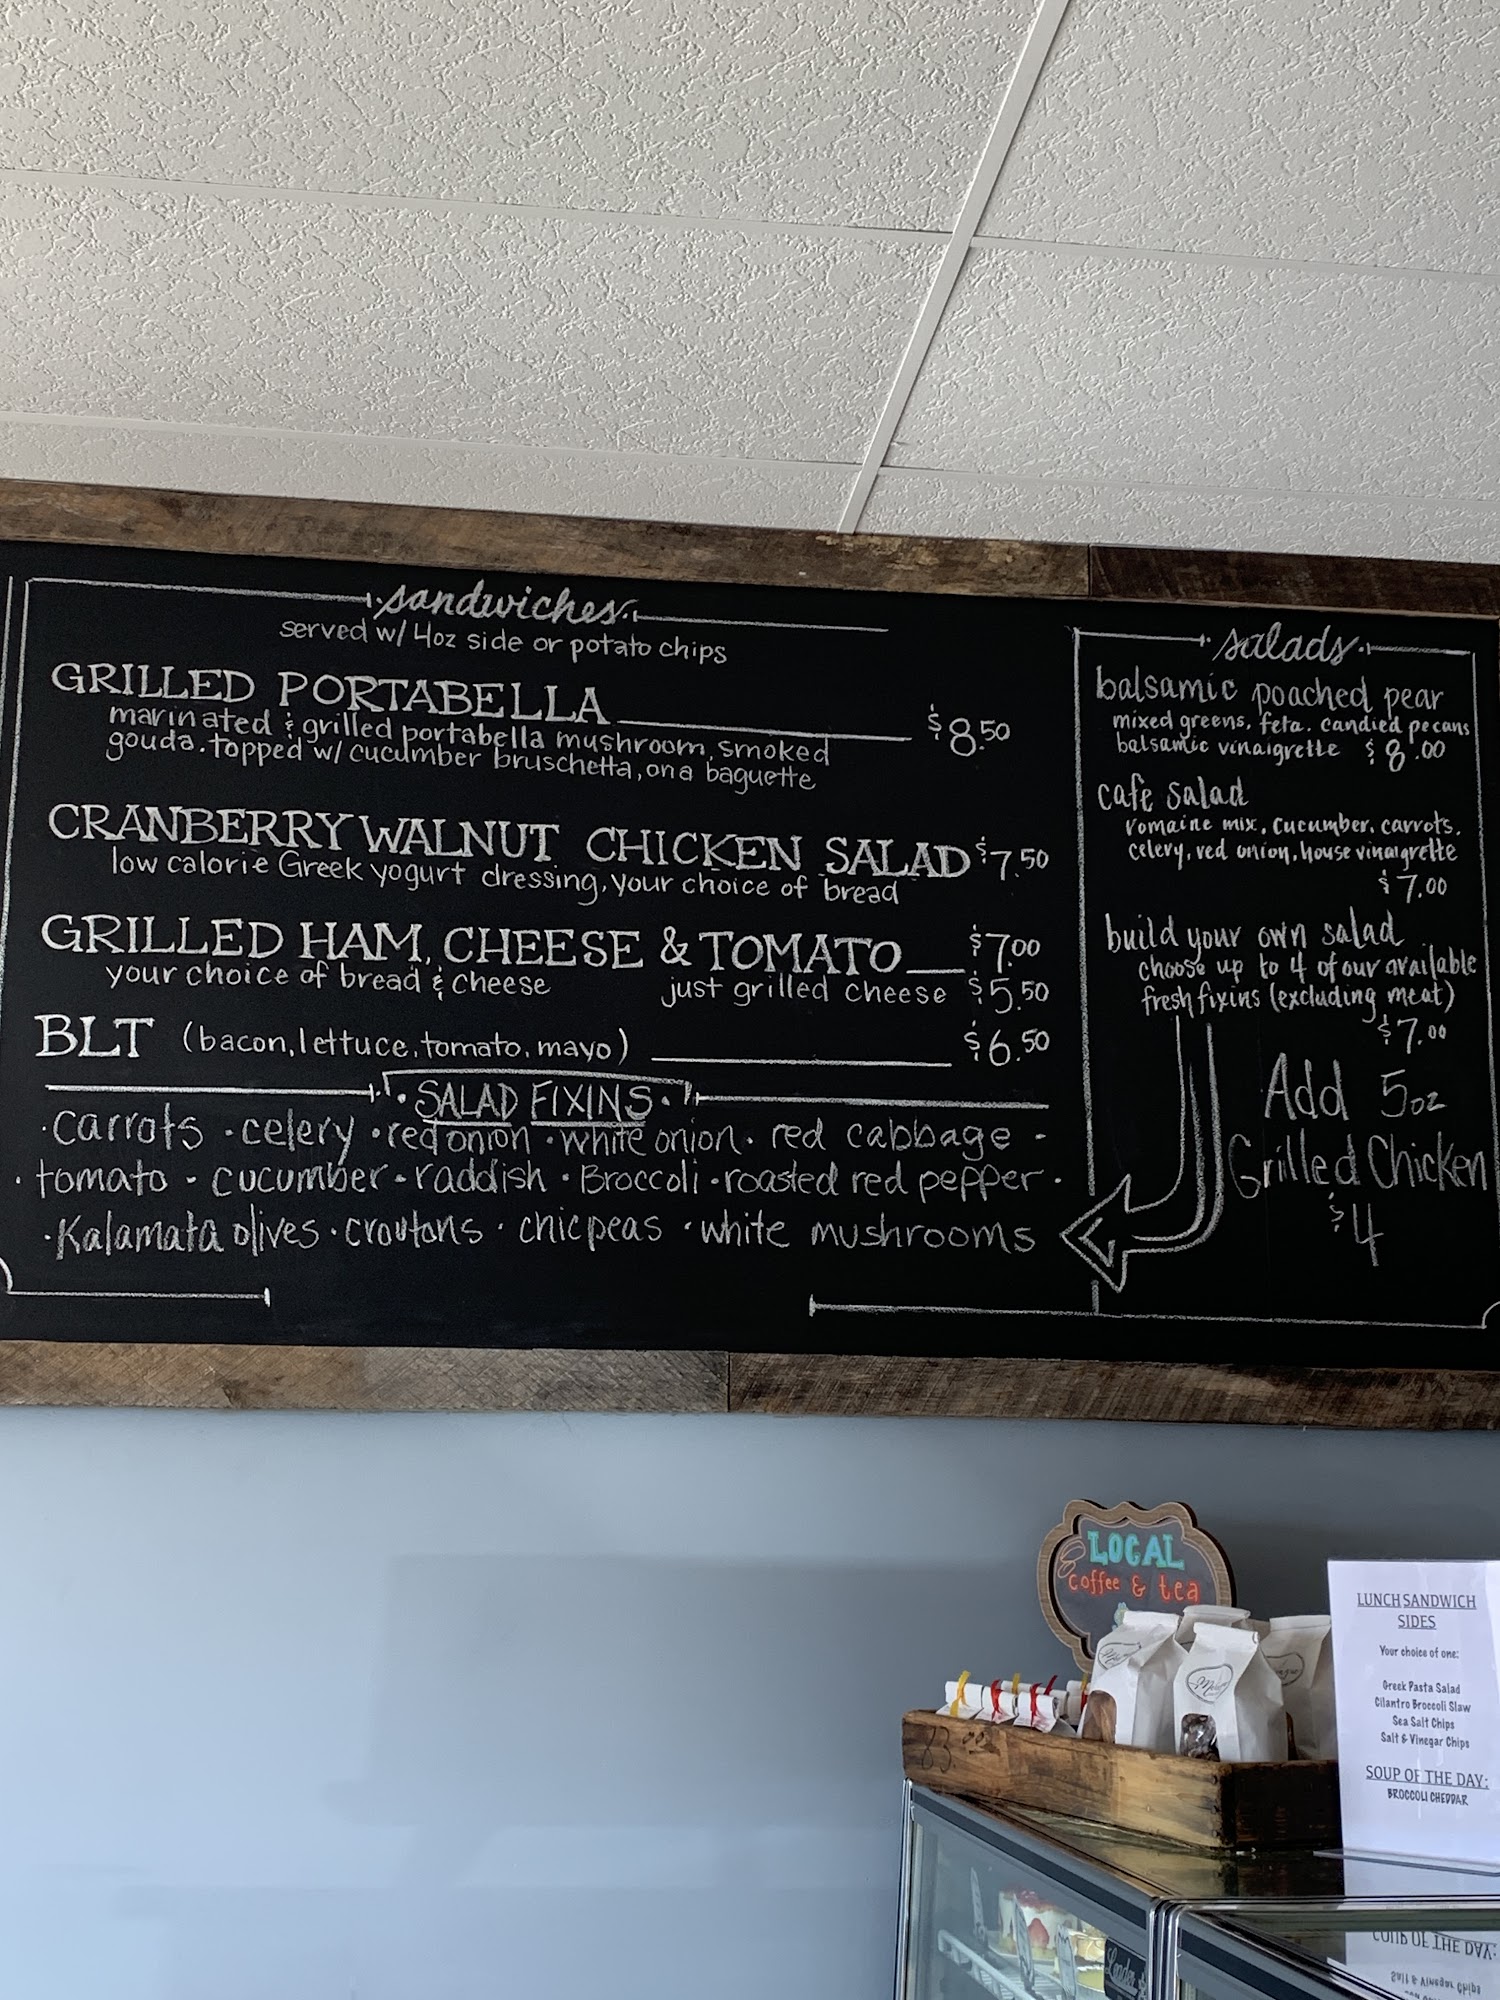 sandwiches
served w/ 4oz side or potato chips
GRILLED PORTABELLA $8.50
marinated & grilled portabella mushroom, smoked
gouda. topped w/ cucumber bruschetta, on a baguette
CRANBERRY WALNUT CHICKEN SALAD $7.50
low calorie Greek yogurt dressing, your choice of bread
GRILLED HAM, CHEESE & TOMATO $7.00
your choice of bread & cheese just grilled cheese $5.50
BLT (bacon, lettuce, tomato, mayo) $6.50
· SALAD FIXINS ·
· carrots · celery · red onion · white onion · red cabbage ·
· tomato · cucumber · raddish · Broccoli · roasted red pepper ·
· Kalamata olives · croutons · chicpeas · white mushrooms
salads
balsamic poached pear
mixed greens, feta, candied pecans
balsamic vinaigrette $8.00
cafe salad
romaine mix, cucumber, carrots,
celery, red onion, house vinaigrette
$7.00
build your own salad
choose up to 4 of our available
fresh fixins (excluding meat)
$7.00
Add 5oz
Grilled Chicken
$4
LOCAL
coffee & tea
LUNCH SANDWICH
SIDES
Your choice of one:
Greek Pasta Salad
Cilantro Broccoli Slaw
Sea Salt Chips
Salt & Vinegar Chips
SOUP OF THE DAY:
BROCCOLI CHEDDAR